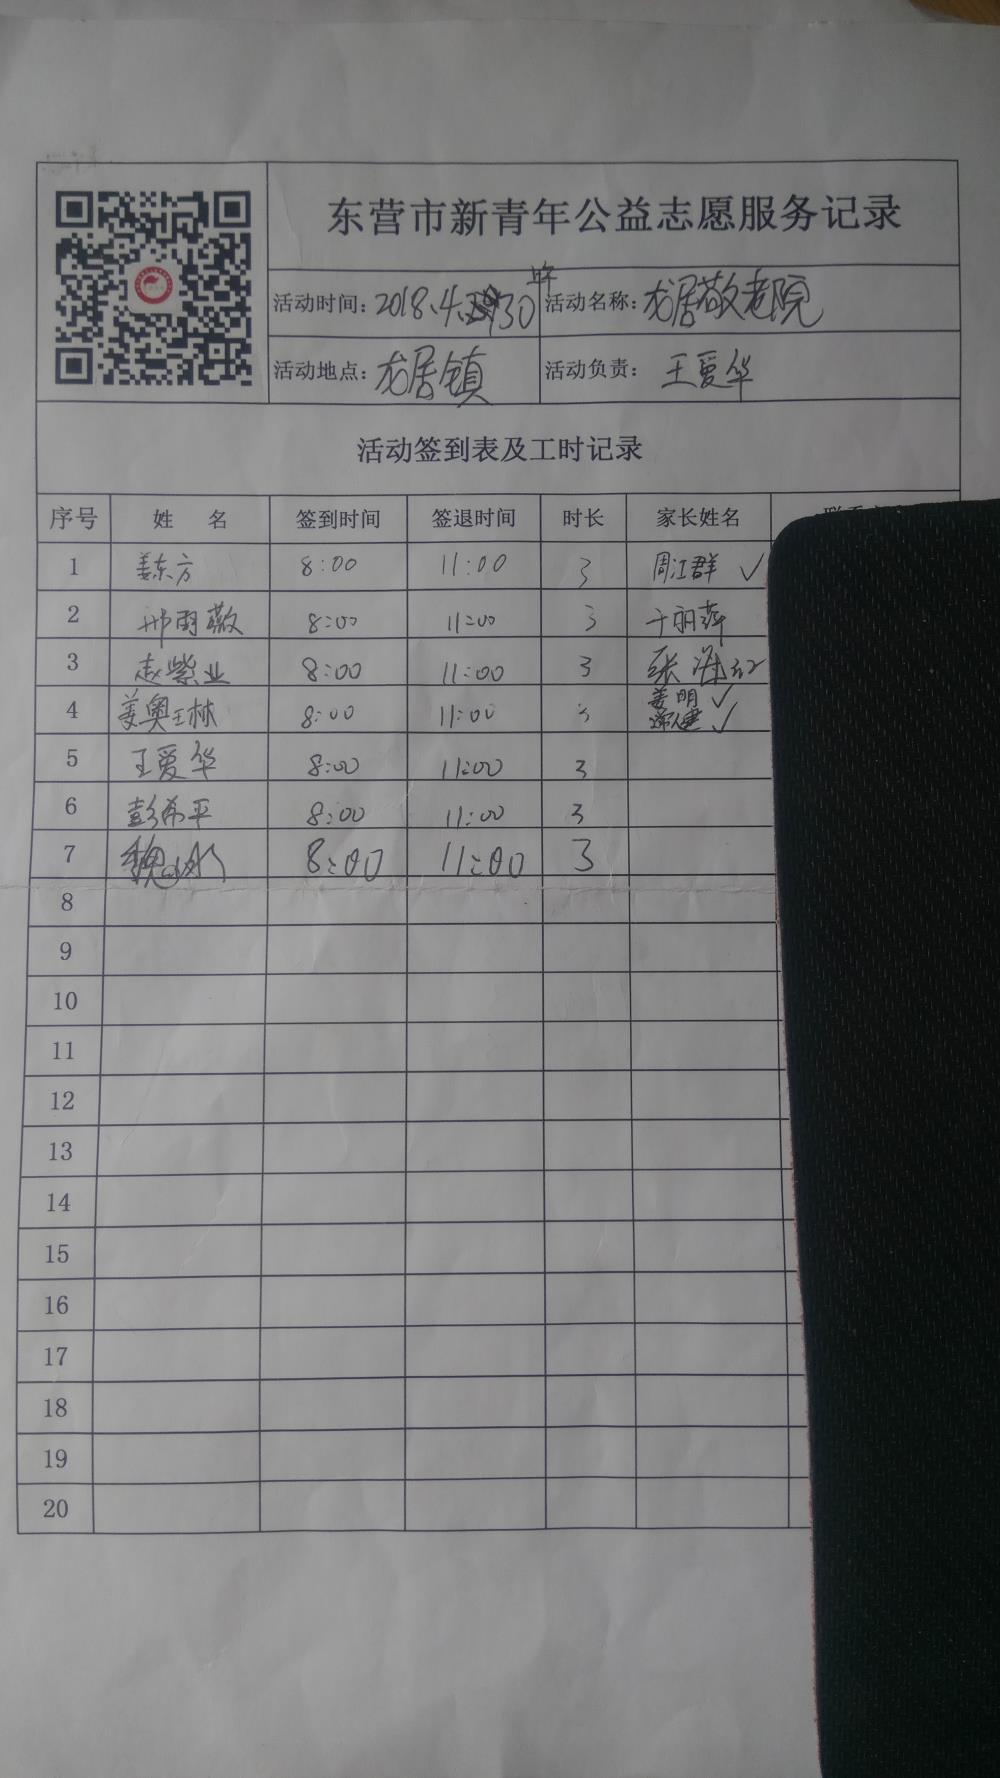 东营市新青年公益志愿服务记录
活动时间：2018.4.30 活动名称：龙居敬老院
活动地点：龙居镇 活动负责：王爱华
活动签到表及工时记录
序号 姓 名 签到时间 签退时间 时长 家长姓名
1 姜东方 8:00 11:00 3 周江群 ✓
2 邢雨薇 8:00 11:00 3 于丽萍
3 赵紫业 8:00 11:00 3 张海红
4 8:00 11:00 3 姜明 ✓
✓
5 王爱华 8:00 11:00 3
6 彭希平 8:00 11:00 3
7 8:00 11:00 3
8
9
10
11
12
13
14
15
16
17
18
19
20